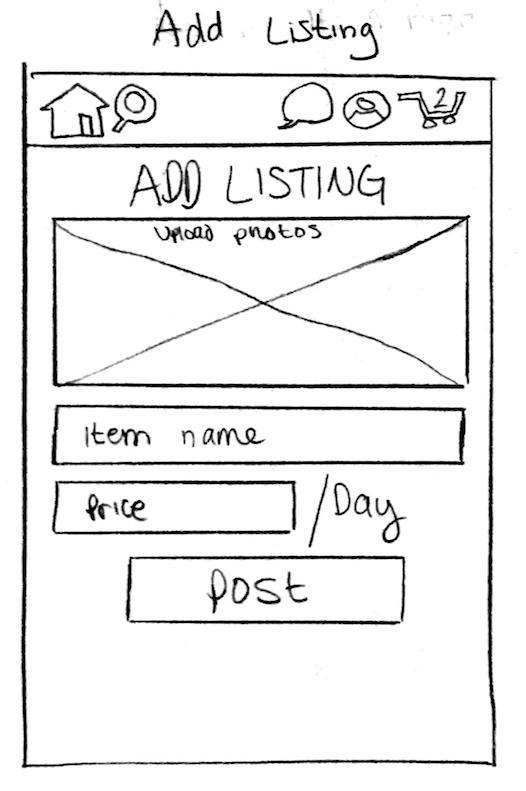 Add Listing
2
ADD LISTING
Upload photos
Item name
Price /Day
Post